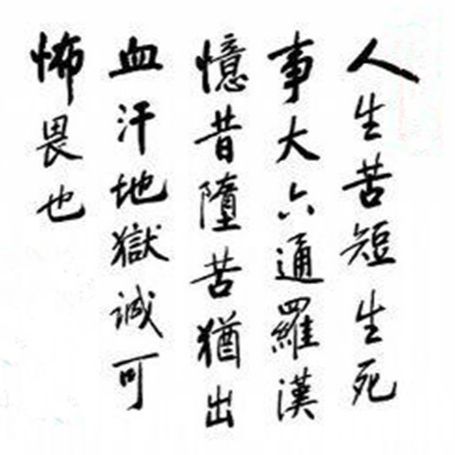 人生苦短生死
事大六通羅漢
憶昔墮苦猶出
血汗地獄誠可
怖畏也